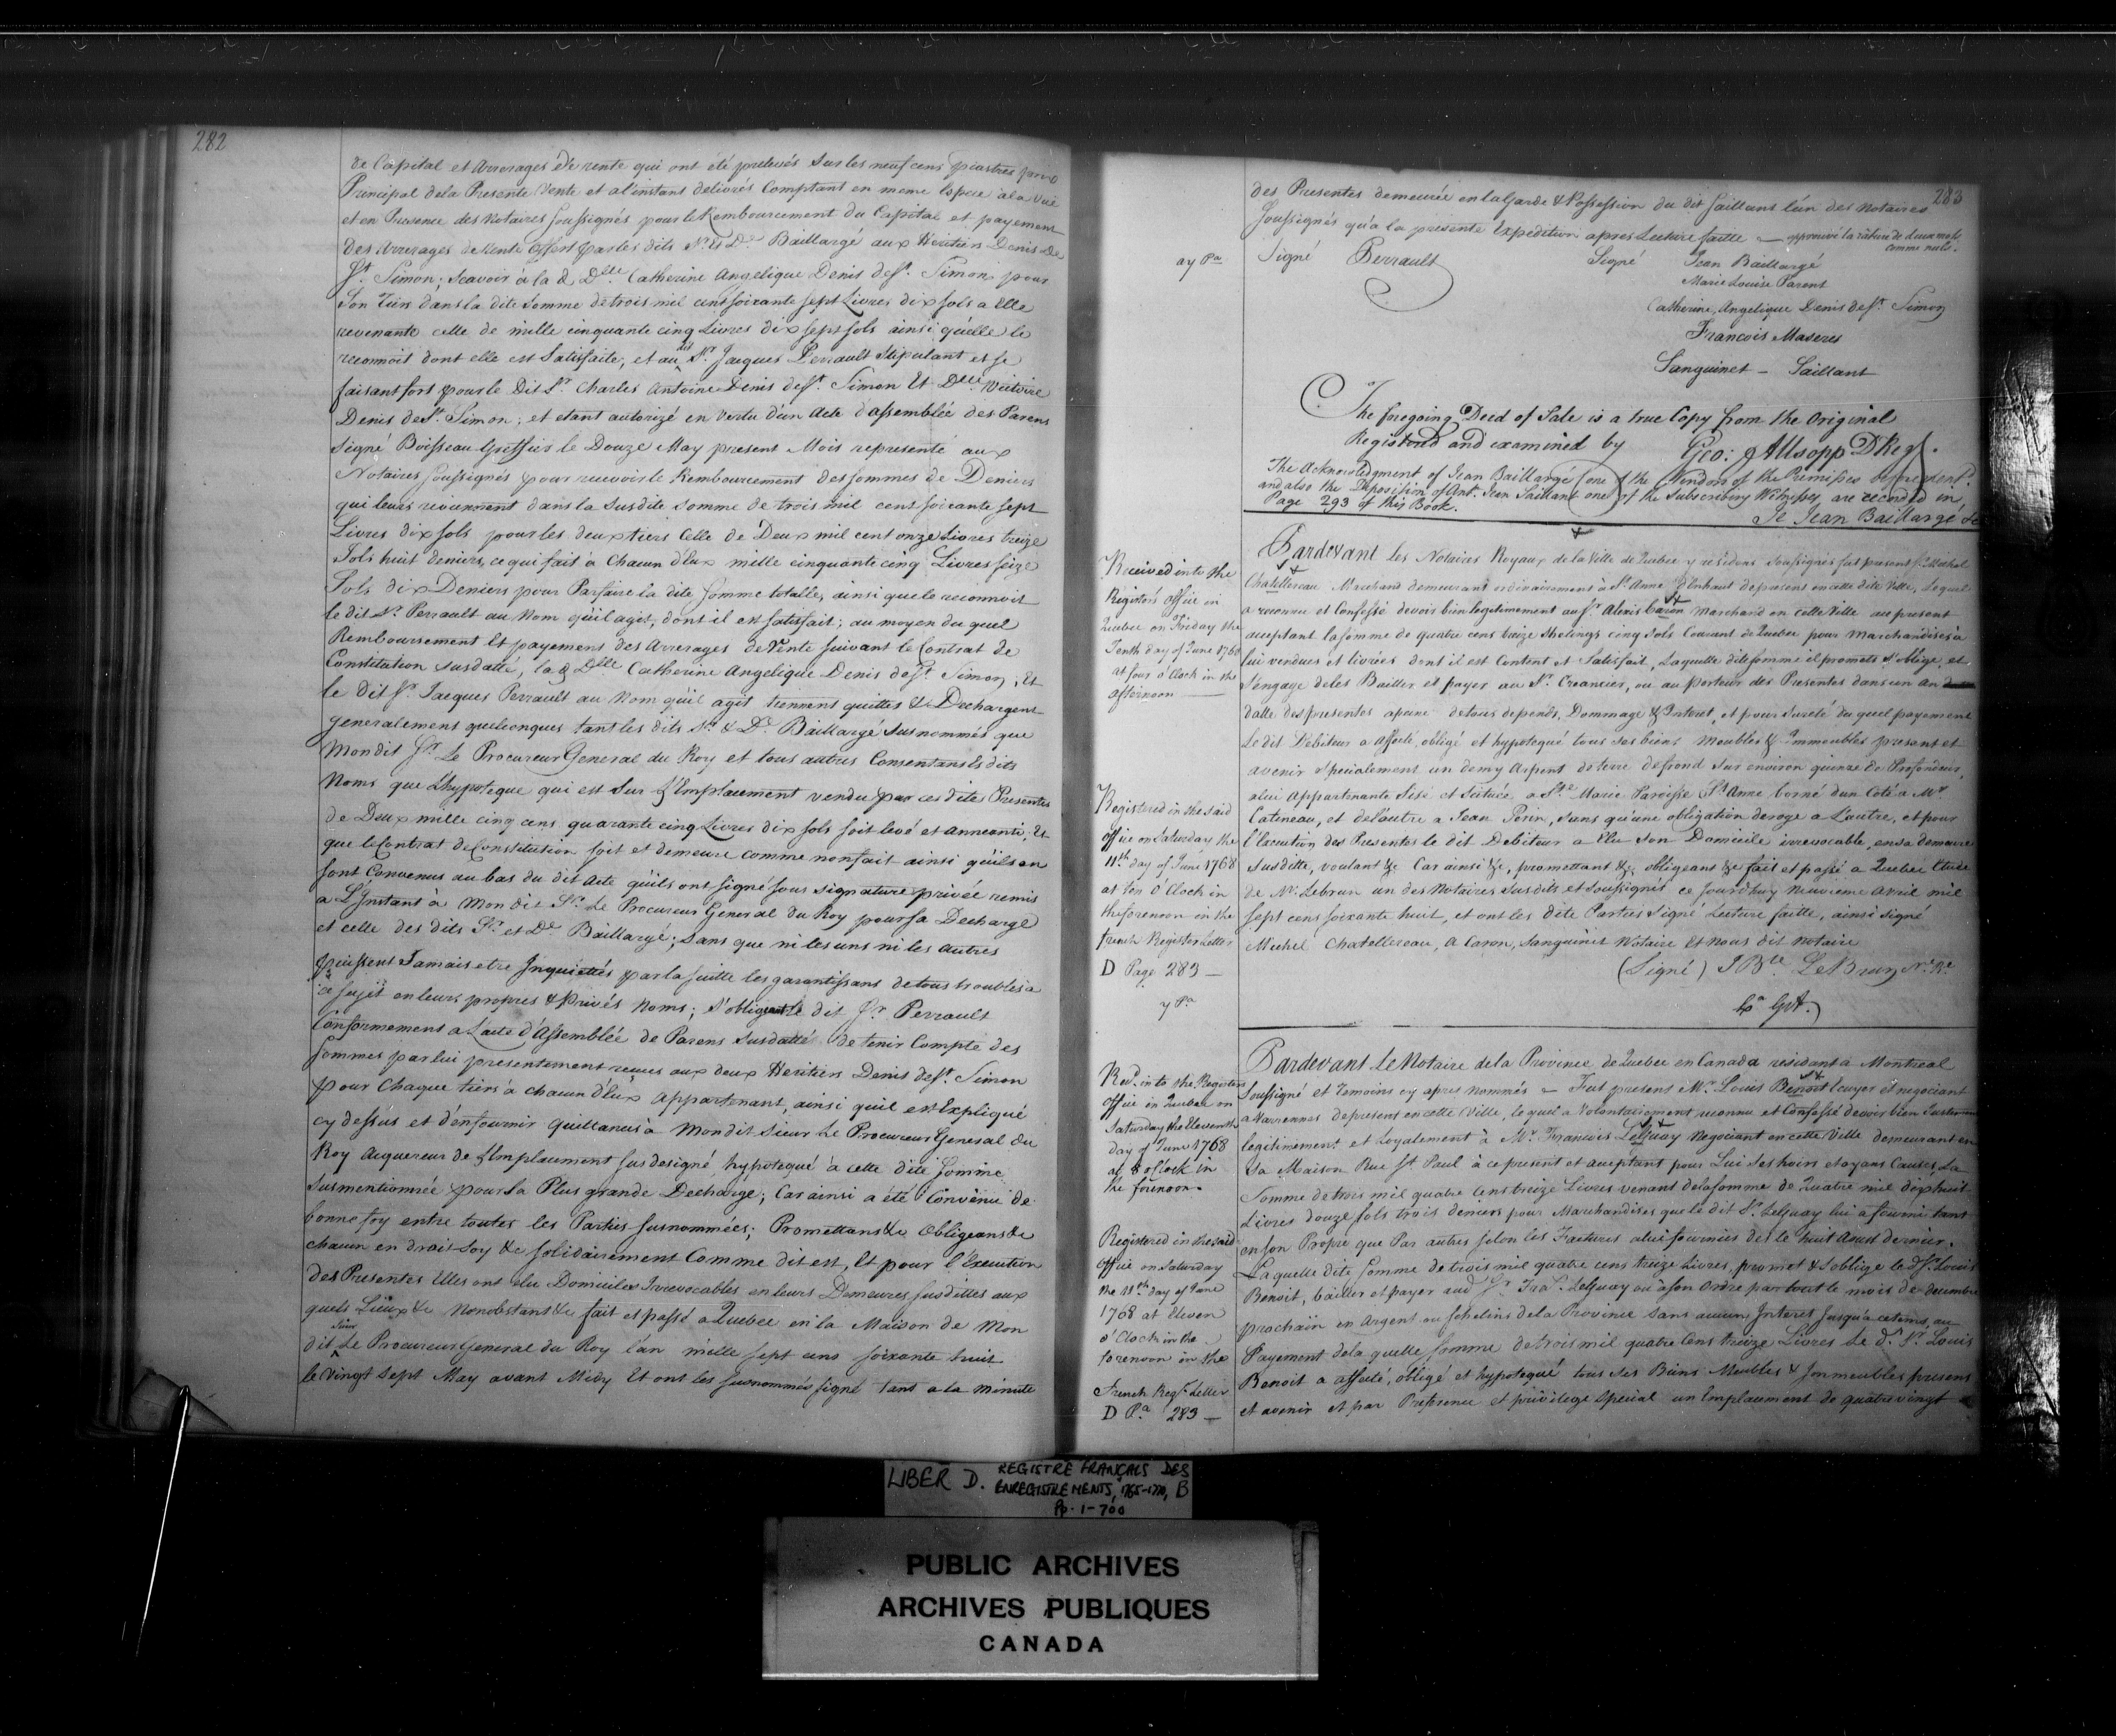 282
de Capital et Arrerages de rente qui ont été prelevés sur les neuf cens piastres prix
Principal dela Presente Vente et a l'instant delivrés Comptant en meme Espece a la Vuë
et en Presence des Notaires Soussignés pour le Remboursement du Capital et payement
des Arrerages de Rente Offert par les dits Sr. Et De. Baillargé aux Heritiers Denis De
St. Simon; Scavoir à la d. Dlle. Catherine Angelique Denis de St. Simon pour
Son Tiers dans la dite Somme de trois mil cent soixante sept Livres dix sols a Elle
revenante celle de mille cinquante cinq Livres dix sept sols ainsi qu'elle le
reconnoit dont elle est Satisfaite, et au dit Sr. Jacques Perrault Stipulant et se
faisant fort pour le Dit Sr. Charles Antoine Denis de St. Simon Et Dlle. Victoire
Denis de St. Simon; et etant autorizé en Vertu d'un Acte d'assemblée des Parens
Signé Boisseau Greffier le Douze May present Mois representé aux
Notaires soussignés pour recevoir le Remboursement des sommes de Deniers
qui leurs reviennent dans la Susdite Somme de trois mil cent soixante sept
Livres dix sols pour les deux tiers Celle de Deux mil cent onze Livres treize
Sols huit deniers, ce qui fait à Chacun d'Eux mille cinquante cinq Livres seize
Sols dix Deniers pour Parfaire la dite Somme totalle, ainsi que le reconnoit
le dit Sr. Perrault au Nom qu'il agit, dont il est satisfait; au moyen du quel
Remboursement Et payemens des Arrerages de Rente suivant le Contrat de
Constitution susdatté, la d. Dlle. Catherine Angelique Denis de St. Simon, Et
le dit Sr. Jacques Perrault au Nom qu'il agit tiennent quittes & Dechargent
generalement quelconques tant les dits Sr. & De. Baillargé susnommés que
Mondit Sr. Le Procureur General du Roy et tous autres Consentans Esdits
Noms que L'hypoteque qui est sur L'Emplacement vendu par ces dite Presentes
de Deux mille cinq cens quarante cinq Livres dix sols soit levé et anneanti; Et
que le Contrat de Constitution soit et demeure comme non fait ainsi qu'ils en
sont Convenus au bas du dit Acte qu'ils ont signé sous signature privée remis
a L'Instant à Mon dit Sr. Le Procureur General du Roy pour sa Decharge
et celle des dits Sr. et De. Baillargé; Sans que ni les uns ni les Autres
puissent Jamais etre Inquiettés par la suitte les garantissans de tous troubles a
ce sujet en leurs propres & Privés Noms; S'obligeant le dit Sr. Perrault
Conformement a L'acte d'Assemblée de Parens Susdatté de tenir Compte des
Sommes par lui presentement recues aux deux Heritiers Denis de St. Simon
pour Chaque tiers à chacun d'Eux Appartenant, ainsi qu'il est Expliqué
cy dessus et d'en fournir quittances à Mondit Sieur Le Procureur General du
Roy Acquereur de L'Emplacement sus designé hypotequé à cette dite Somme
Susmentionnée pour Sa Plus grande Decharge; Car ainsi a été Convenu de
bonne foy entre toutes les Parties susnommées; Promettans &c Obligeans &c
chacun en droit Soy &c solidairement Comme dit est, Et pour l'Execution
des Presentes Elles ont elu Domiciles Irrevocables en leurs Demeures susdittes aux
quels Lieux &c Nonobstant &c fait et passé a Quebec en la Maison de Mon
dit Sieur Le Procureur General du Roy l'an mille sept cens soixante huit
le Vingt Sept May avant Midy Et ont les susnommés signé tant a la Minute
283
des Presentes demeurée en la Garde & Possession du dit Saillant l'un des Notaires
Soussignés qu'a la presente Expedition apres Lecture faitte — approuvé la rature de deux mots
comme nuls.
Signé Perrault
Signé Jean Baillargé
Marie Louise Parent
Catherine Angelique Denis de St. Simon
Francois Maseres
Sanguinet — Saillant
ay Pa
The foregoing Deed of Sale is a true Copy from the Original
Registered and examined by Geo: Allsopp DRegr.
The Acknowledgment of Jean Baillargé (one of the Vendors of the Premisses
and also the Deposition of Ant. Jean Saillant one of the Subscribing Witnesses are recorded in
Page 293 of this Book.
Je Jean Baillargé &c
Received into the
Registers Office in
Quebec on Friday the
Tenth day of June 1768
at four o'Clock in the
afternoon —
Pardevant les Notaires Royaux de la Ville de Quebec y residens Soussignés fut present Sr. Michel
Chatellereau Marchand demeurant ordinairement à St. Anne d'Enhaut depresent en cette dite Ville, Lequel
a reconnu et Confessé devoir bien Legitimement au Sr. Alexis Caron Marchand en cette Ville au present
acceptant la somme de quatre cens treize Shelings cinq Sols Courant de Quebec pour Marchandises a
lui vendues et livrées dont il est Content et Satisfait, Laquelle dite somme il promets S'oblige, et
S'engage de les Bailler et payer au Sr. Creancier, ou au Porteur des Presentes dans un An
datte des presentes apeine de tous depends, Dommage & Interet, et pour Sureté du quel payement
Le dit Debiteur a affecté, obligé et hypotequé tous ses biens Meubles & Immeubles present et
avenir Specialement un demy Arpent de terre de front Sur environ quinze de Profondeur,
a lui Appartenante Sise et Scituée a Ste. Marie Paroisse St. Anne borné d'un Coté a Mr.
Catineau, et de l'autre a Jean Perin, sans qu'une obligation deroge a L'autre, et pour
l'Execution des Presentes le dit Debiteur a Elu Son Domicile irrevocable, en sa demeure
Susditte, voulant &c Car ainsi &c, promettant &c, obligeant &c fait et passé a Quebec Etude
de Mr. Lebrun un des Notaires Susdits et Soussignés ce Jourdhuy Neuvieme Avril mil
Sept cens soixante huit, et ont les dite Parties Signé Lecture faitte, ainsi signé
Michel Chatellereau, A Caron, Sanguinet Notaire Et Nous dit Notaire
(Signé) J Bte. LeBrun Nre.
Registered in the said
Office on Saturday the
11th day of June 1768
at ten O'Clock in
the forenoon in the
french Register Letter
D Page 283 —
y Pa
Recd. into the Registers
Office in Quebec on
Saturday the Eleventh
day of June 1768
at 8 o'Clock in
the forenoon.
Pardevant le Notaire dela Province de Quebec en Canada residant à Montreal
Soussigné et Temoins cy apres nommés — Fut present Mr. Louis Benoit Ecuyer et negociant
a Varennes depresent en cette Ville, lequel a Volontairement reconnu et Confessé devoir bien Justement
legitimement et Loyalement à Mr. Francois LeGuay Negociant en cette Ville demeurant en
Sa Maison Rue St. Paul à ce present et acceptant pour Lui Ses hoirs et ayans Causes, La
Somme de trois mil quatre Cens treize Livres venant dela somme de Quatre mil dix huit
Livres douze sols trois deniers pour Marchandises que le dit Sr. LeGuay lui a fourni tant
en son Propre que Par autres selon les Factures a lui fournies des le huit Aoust dernier.
Laquelle dite Somme de trois mil quatre cens treize Livres promet & S'oblige le d. Sr. Louis
Benoit, bailler et payer aud. Sr. Fra. LeGuay ou à son Ordre par tout le mois de decembre
prochain en Argent ou Schelins de la Province sans aucun Interet Jusqu'a ce tems, au
Payement dela quelle Somme de trois mil quatre Cens treize Livres Le d. Sr. Louis
Benoit a affecté, obligé et hypotequé tous ses Biens Meubles & Immeubles presens
et avenir et par Preference et privilege Special un Emplacement de quatre vingt
Registered in the said
Office on Saturday
the 11th day of June
1768 at Eleven
o'Clock in the
forenoon in the
French Regr. Letter
D Pa. 283 —
LIBER D. REGISTRE FRANÇAIS DES
ENREGISTREMENTS, 1765-1770, B
Pp. 1-700
PUBLIC ARCHIVES
ARCHIVES PUBLIQUES
CANADA